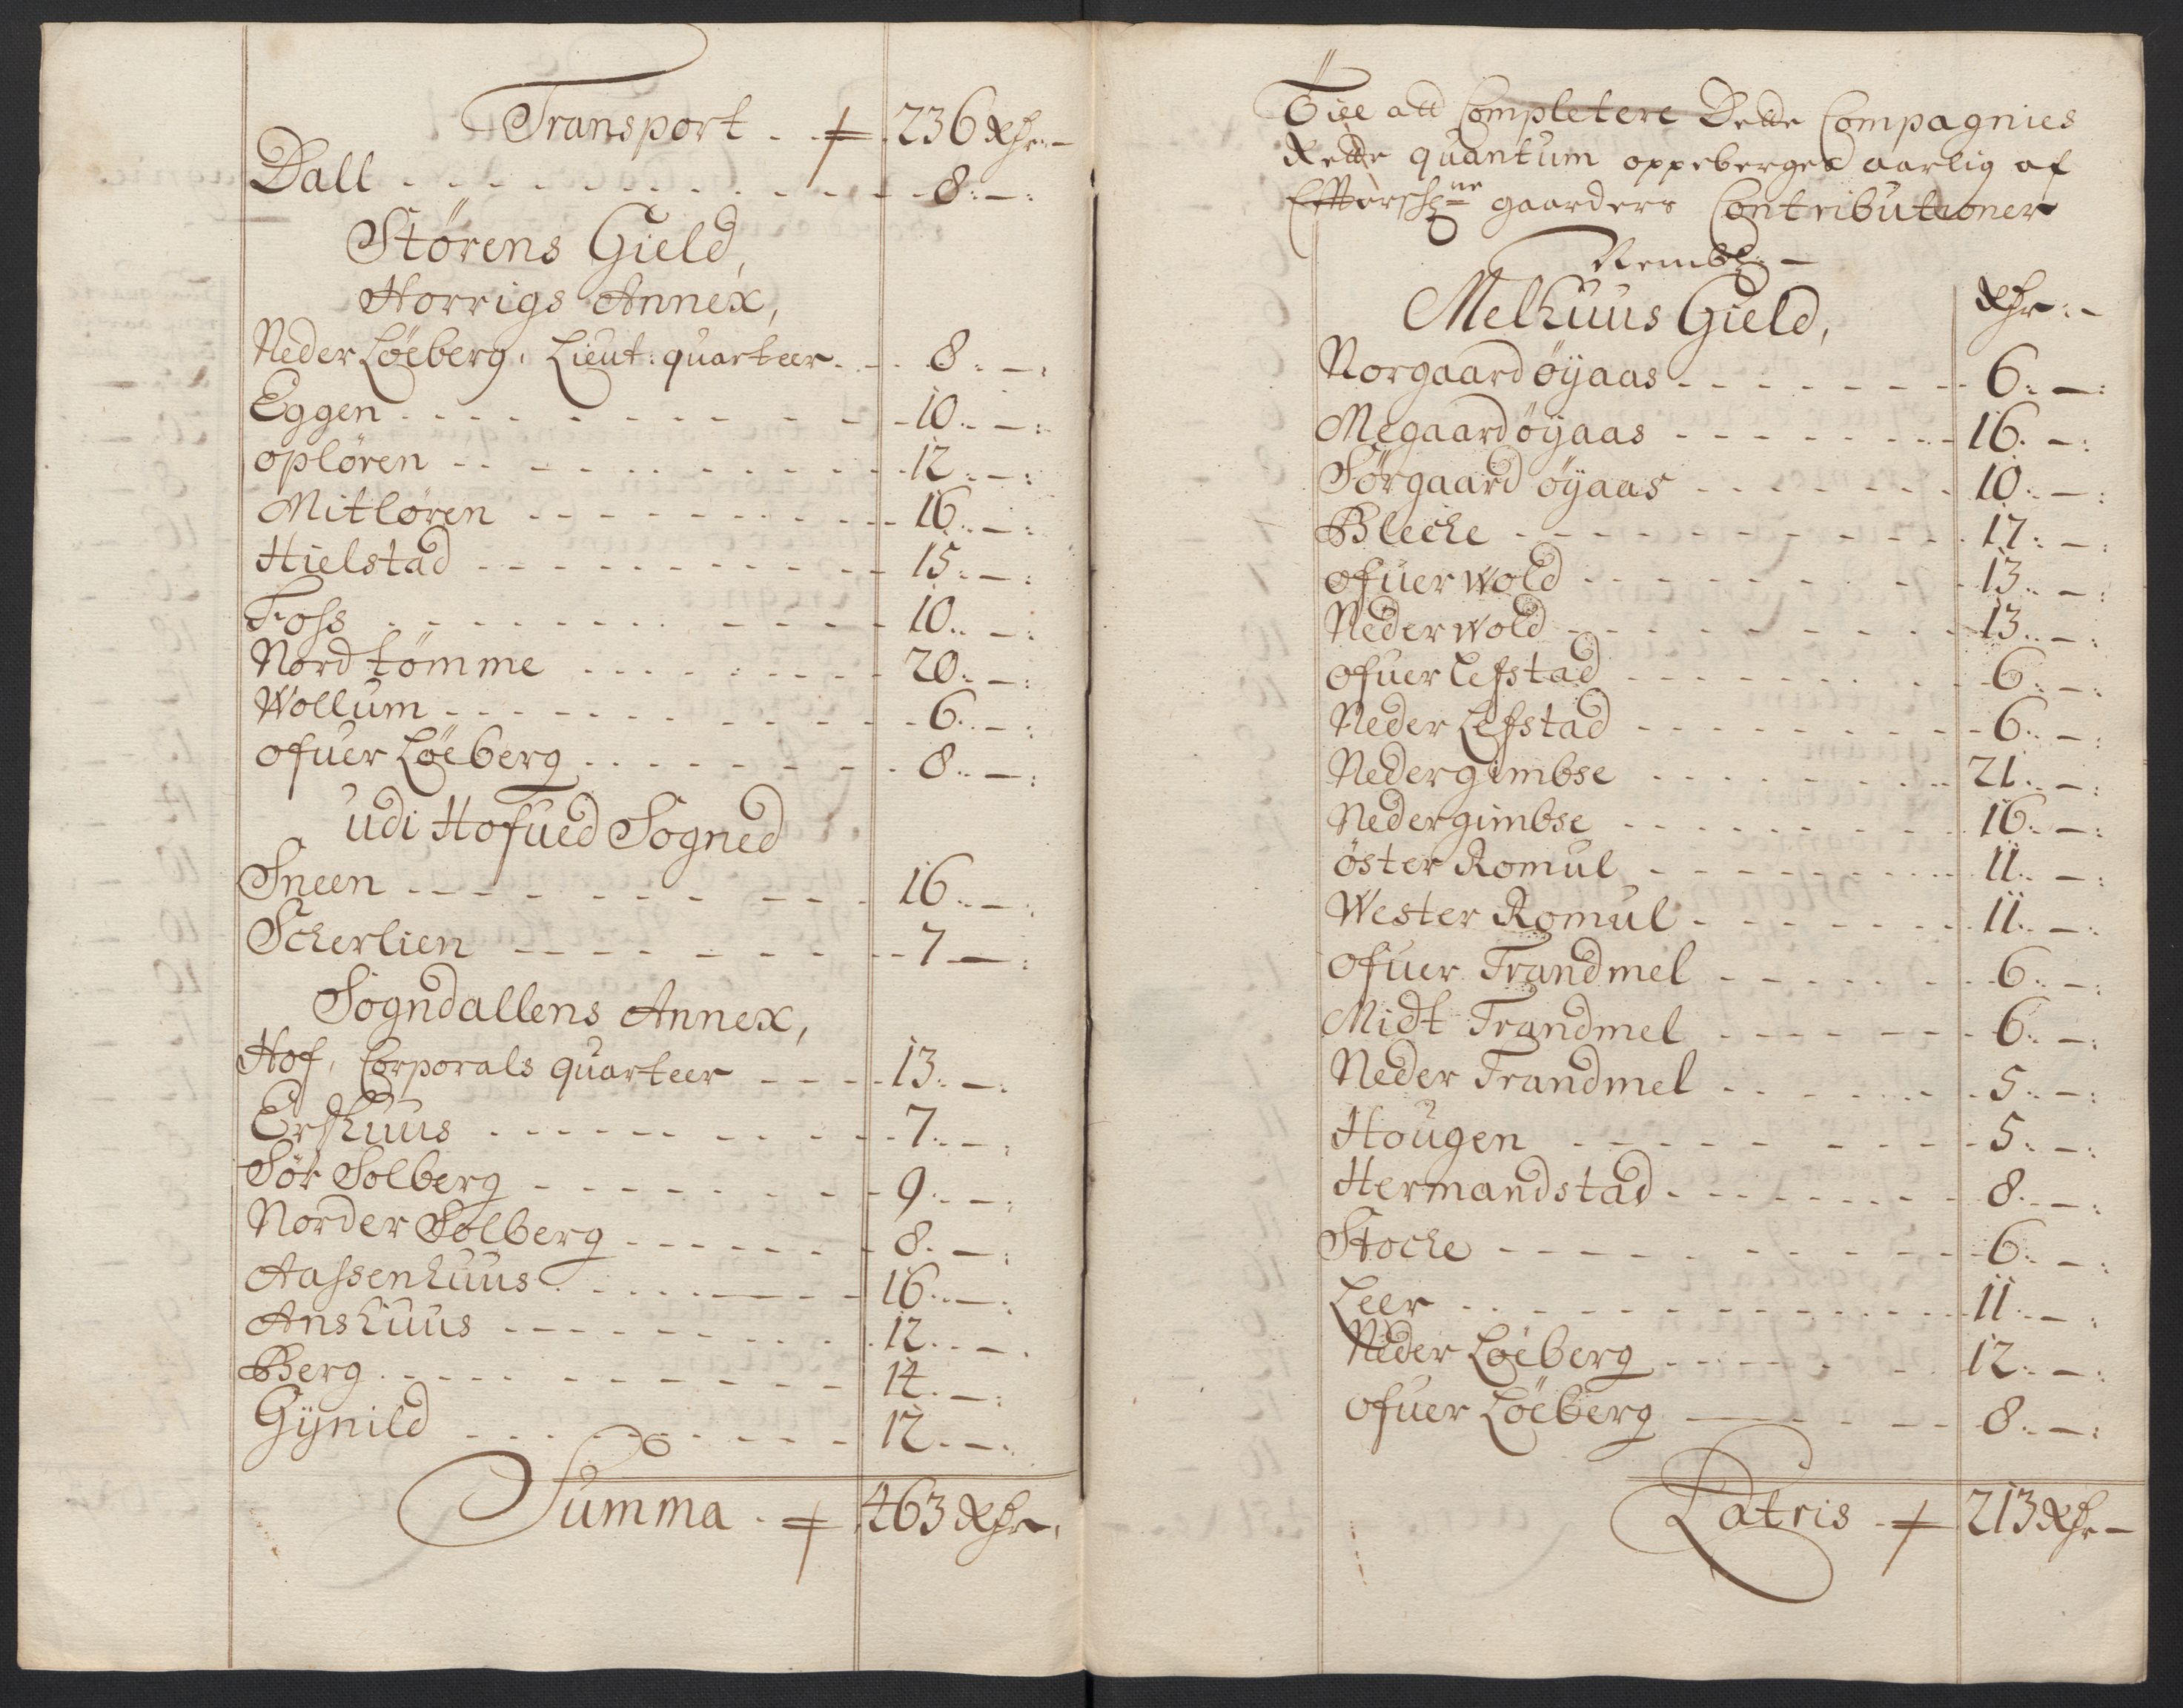 Transport . . 236 Rdr: –
Dall . . . . . . . . . . . . 8: – :
Störens Gield,
Horrigs Annex,
Neder Löeberg, Lieut: quarteer . . . 8: – :
Eggen . . . . . . . . . . 10: – :
oplören . . . . . . . . . 12: – :
Mitlören . . . . . . . . . 16: – :
Hielstad . . . . . . . . . 15: – :
Foss . . . . . . . . . . 10: – :
Nord tömme . . . . . . . . 20: – :
Wollum . . . . . . . . . . 6: – :
ofuer Löeberg . . . . . . . . 8: – :
udi Hofued Sogned
Sneen . . . . . . . . . . 16: – :
Scherlien . . . . . . . . . 7 – :
Sogndallens Annex,
Hof, Corporals quarteer . . . . 13: – :
Erskuus . . . . . . . . . 7: – :
Sör Solberg . . . . . . . . 9: – :
Norder Solberg . . . . . . . 8: – :
Aassenhuus . . . . . . . . 16: – :
Anshuus . . . . . . . . . 12: – .
Berg . . . . . . . . . . 14: – :
Gÿnild . . . . . . . . . 12: – :
Summa . 463 Rdr,
Till att Completere Dette Compagnies
Rette quantum oppeberges aarlig af
Effterschne gaarders Contributioner
Nembl: –
Melhuus Gield,
Rdr: –
Norgaard öÿaas . . . . . . . 6: – :
Megaard öÿaas . . . . . . . 16: – :
Sörgaard öÿaas . . . . . . . 10: – :
Bleche . . . . . . . . . . 17: – :
ofuer wold . . . . . . . . . 13: – :
Neder wold . . . . . . . . . 13: – :
ofuer Lefstad . . . . . . . . 6: – :
Neder Lefstad . . . . . . . . 6: – :
Neder gimbse . . . . . . . . 21: – :
Neder gimbse . . . . . . . . 16: – :
öster Romul . . . . . . . . 11: – :
Wester Romul . . . . . . . . 11: – :
ofuer Trandmel . . . . . . . 6: – :
Midt Trandmel . . . . . . . 6: – :
Neder Trandmel . . . . . . . 5: – :
Hougen . . . . . . . . . . 5: – :
Hermandstad . . . . . . . . 8: – :
Stoche . . . . . . . . . . 6: – :
Leer . . . . . . . . . . . 11: – :
Neder Löeberg . . . . . . . . 12: – :
ofuer Löeberg . . . . . . . . 8: – :
Latris . 213 Rdr –